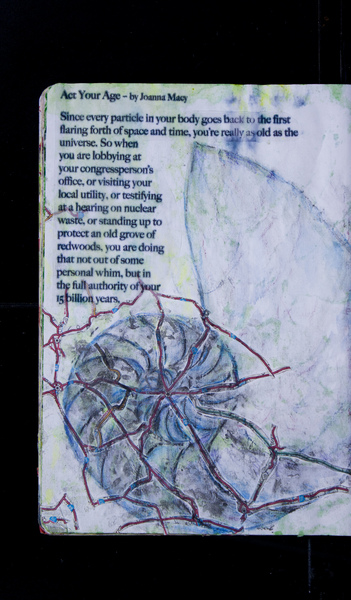 Act Your Age – by Joanna Macy
Since every particle in your body goes back to the first
flaring forth of space and time, you're really as old as the
universe. So when
you are lobbying at
your congressperson's
office, or visiting your
local utility, or testifying
at a hearing on nuclear
waste, or standing up to
protect an old grove of
redwoods, you are doing
that not out of some
personal whim, but in
the full authority of your
15 billion years.